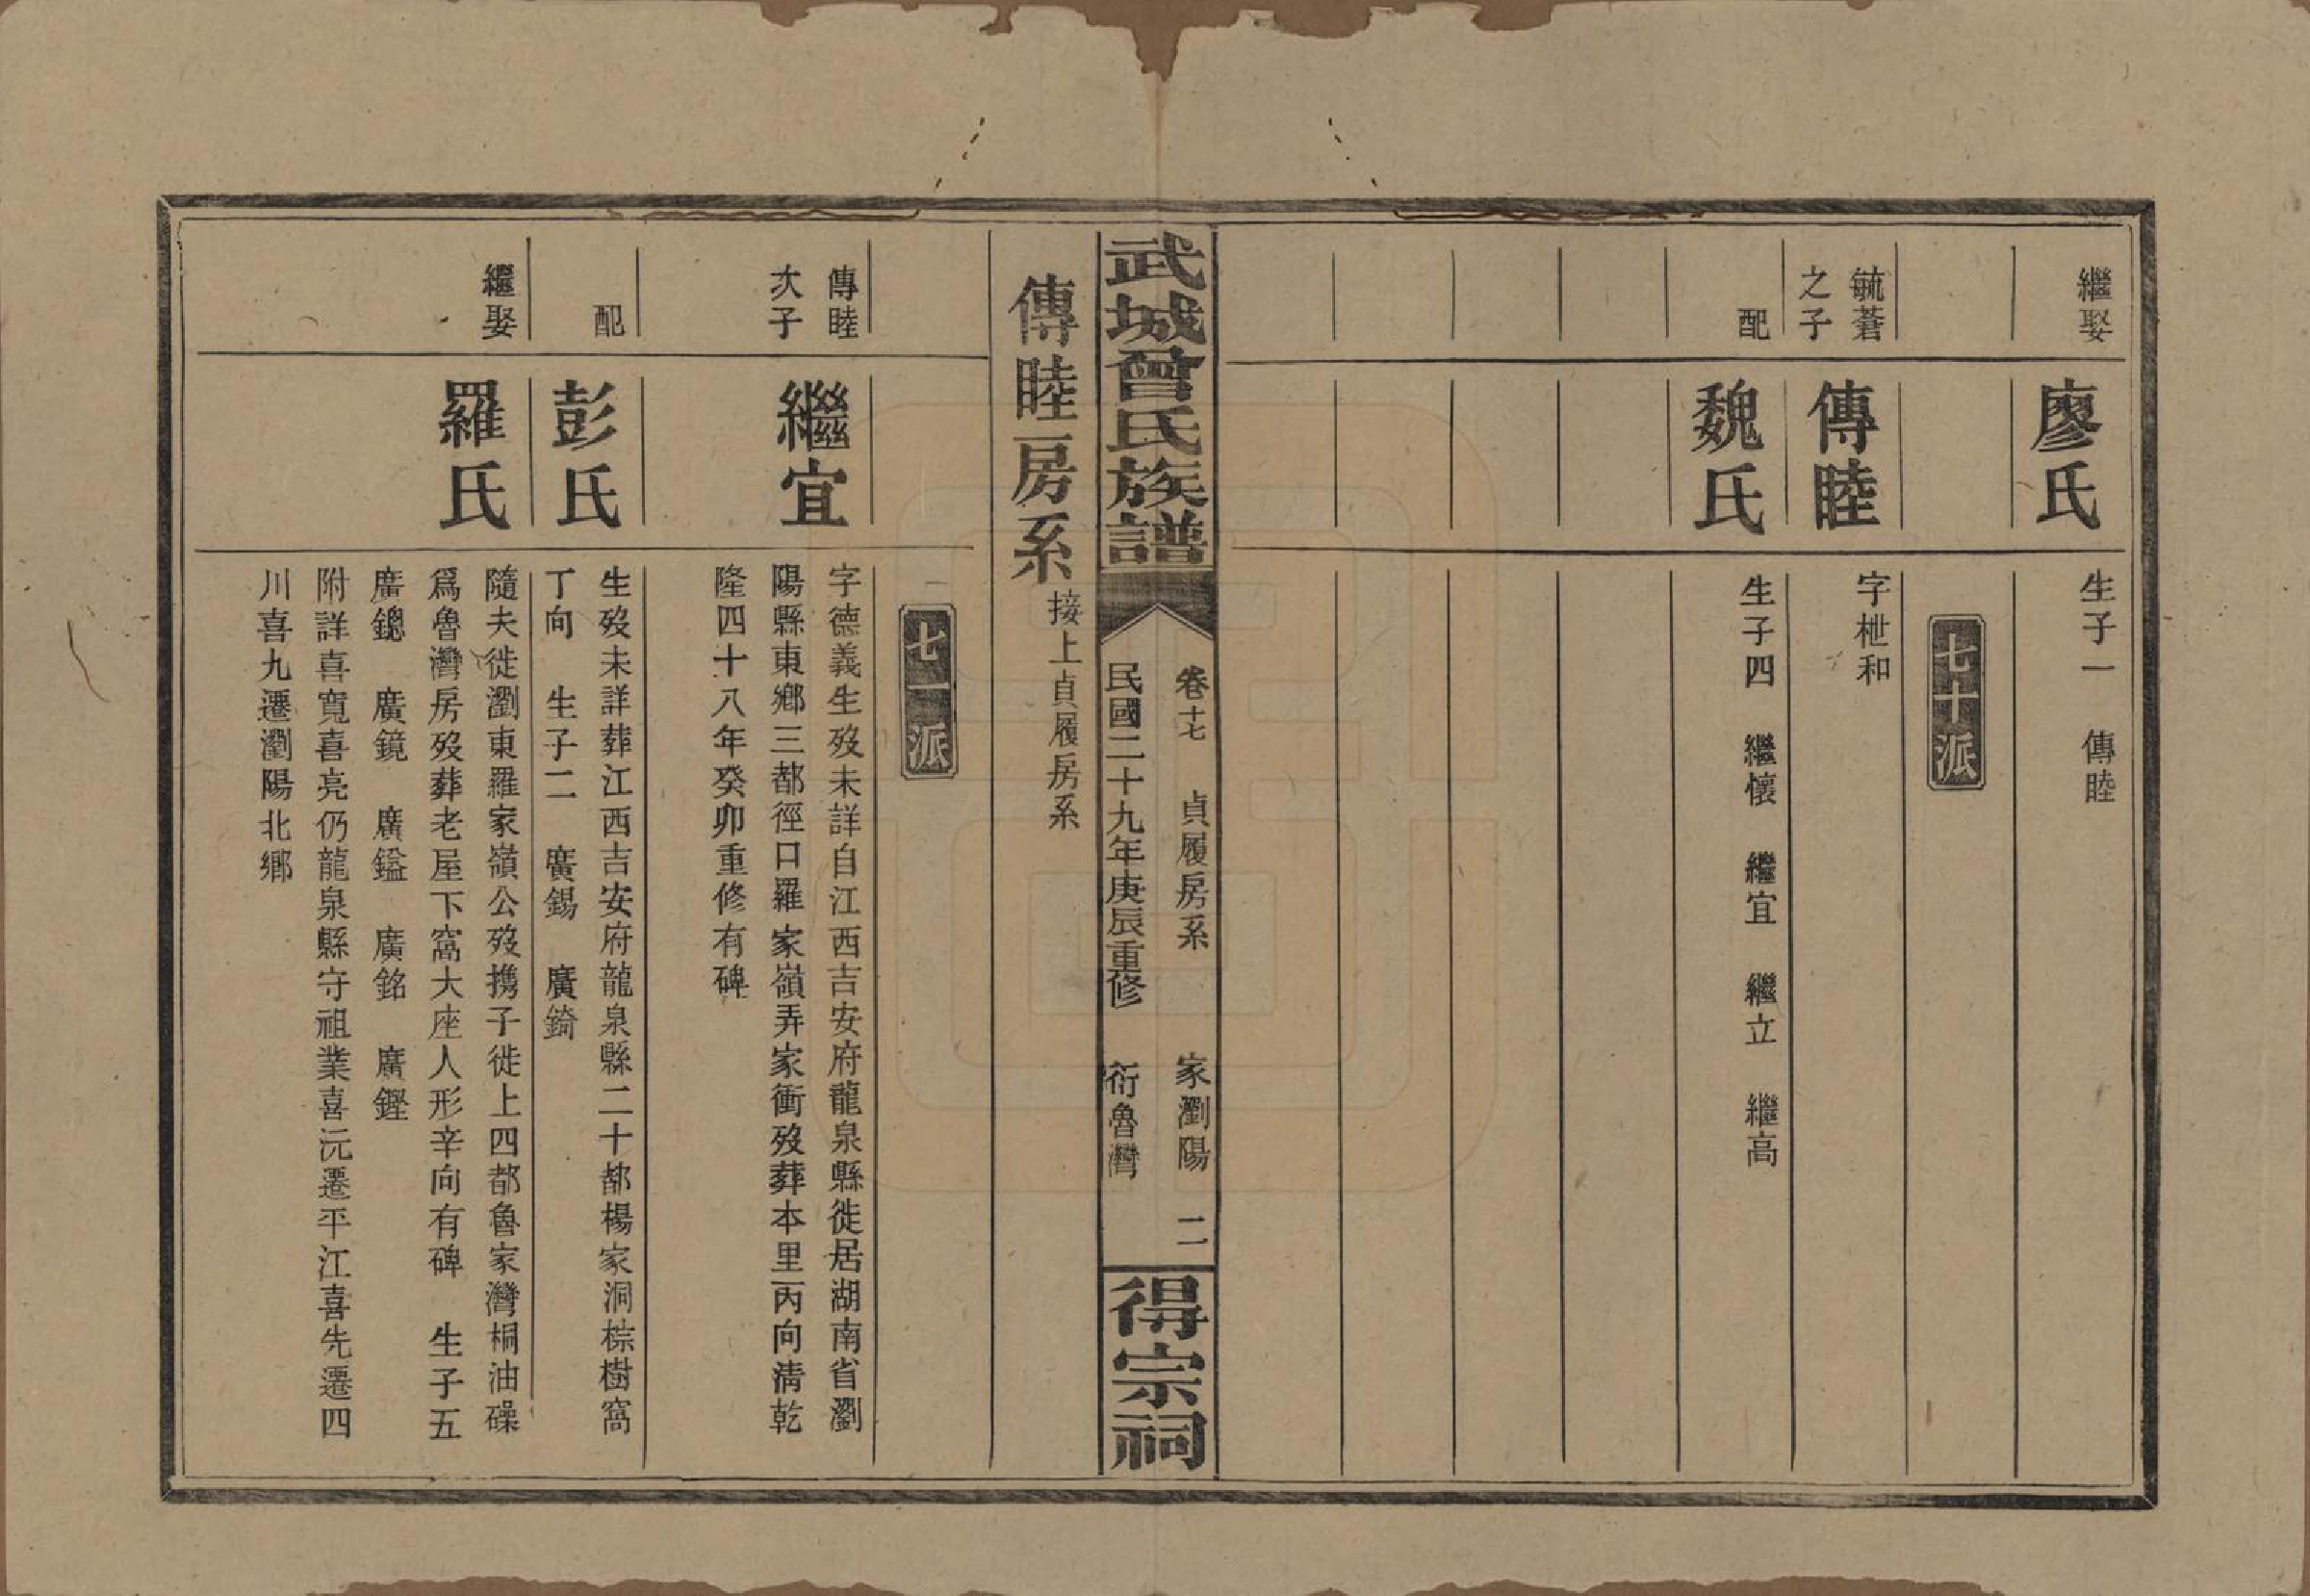 繼娶
廖氏
生子一　傳睦
七十派
毓蒼
之子
傳睦
字枻和
配
魏氏
生子四　繼懷　繼宜　繼立　繼高
武城曾氏族譜
卷十七　貞履房系　家瀏陽　二
民國二十九年庚辰重修　衍魯灣
得宗祠
傳睦房系
接上貞履房系
七一派
傳睦
次子
繼宜
字德義生歿未詳自江西吉安府龍泉縣徙居湖南省瀏
陽縣東鄉三都徑口羅家嶺弄家衝歿葬本里丙向清乾
隆四十八年癸卯重修有碑
配
彭氏
生歿未詳葬江西吉安府龍泉縣二十都楊家洞棕樹窩
丁向　生子二　廣錫　廣錡
繼娶
羅氏
隨夫徙瀏東羅家嶺公歿携子徙上四都魯家灣桐油磉
爲魯灣房歿葬老屋下窩大座人形辛向有碑　生子五
廣鏓　廣鏡　廣鎰　廣銘　廣鏗
附詳喜寬喜亮仍龍泉縣守祖業喜沅遷平江喜先遷四
川喜九遷瀏陽北鄉